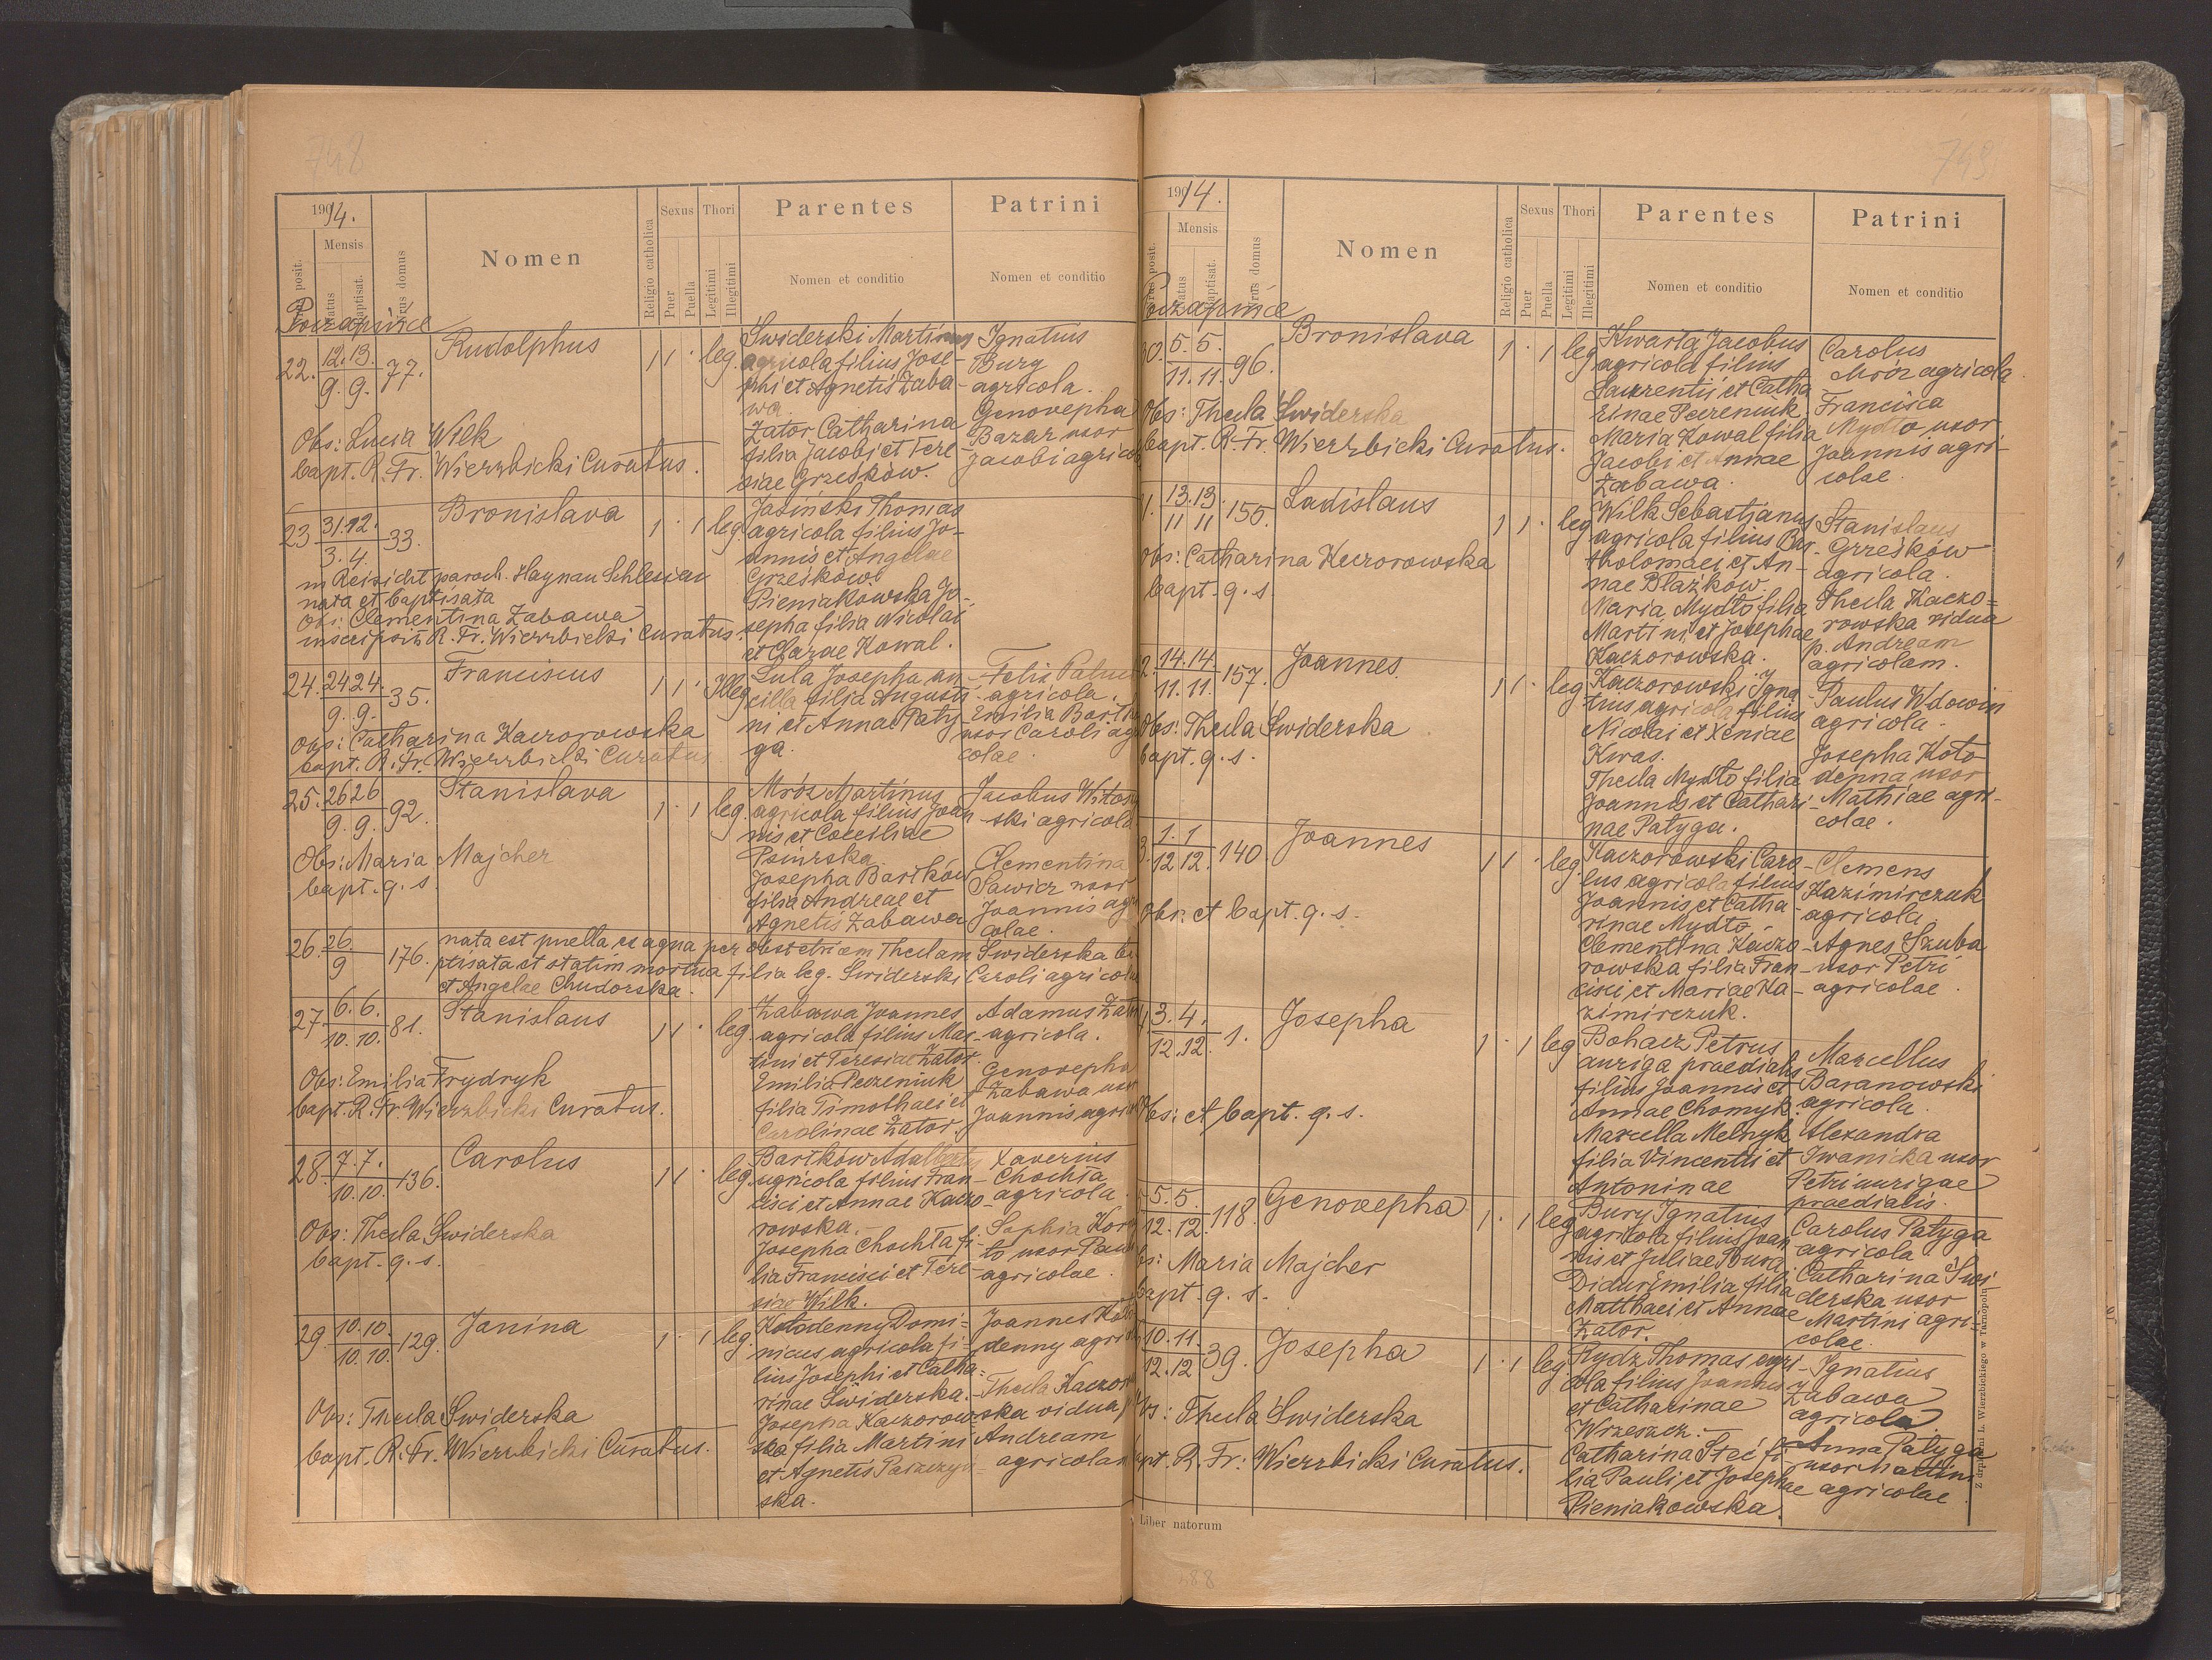 748
1914.
Mensis
Nomen
Religio catholica
Sexus
Puer
Puella
Thori
Legitimi
Illegitimi
Parentes
Nomen et conditio
Patrini
Nomen et conditio
22. 12. 13. 77. Rudolphus 1 1 · leg. Świderski Martinus Ignatius
9. 9. agricola filius Jose- Bury
phi et Agnetis Zaba- agricola.
wa. Genovepha
Obs: Lucia Wilk Zator Catharina Bazar uxor
bapt. R. Fr. Wierzbicki Curatus. filia Jacobi et Tere- Jacobi
siae Grześków.
23 31. 12. 33. Bronislava 1 · 1 leg. Jasiński Thomas
3. 4. agricola filius Jo-
annis et Angelae
in Reisicht paroch. Haynau Schlesien Grześków
nata et baptisata Pieniakowska Jo-
Obs: Clementina Zabawa sepha filia Nicolai
inscripsit R. Fr. Wierzbicki Curatus. et Clarae Kowal.
24. 24 24 35. Franciscus 1 1 · Illeg. Lula Josepha an- Felix
9. 9. cilla filia Augusti- agricola.
ni et Annae Paty- Emilia
Obs: Catharina Kaczorowska ga. uxor Caroli
bapt. R. Fr. Wierzbicki Curatus colae.
25. 26 26 92. Stanislava 1 · 1 leg. Mróz Martinus Jacobus
9. 9. agricola filius Joan- ski agricola
nis et Coeciliae
Obs: Maria Majcher Psiurska. Clementina
bapt. q. s. Josepha Bartków Sawicz uxor
filia Andreae et Joannis
Agnetis Zabawa colae.
26. 26. 176. nata est puella ex aqua per obstetricem Theclam Świderska
9 ptisata et statim mortua filia leg. Świderski Caroli agricolae
et Angelae Chudorska.
27. 6. 6. 81. Stanislaus 1 1 · leg. Zabawa Joannes Adamus
10. 10. agricola filius Mar- agricola.
tini et Teresiae Zator. Genovepha
Obs: Emilia Frydryk Emilia Peczeniuk Zabawa
bapt. R. Fr. Wierzbicki Curatus. filia Timothaei et Joannis
Carolinae Zator.
28. 7. 7. 136. Carolus 1 1 · leg. Bartków Adalbertus Xaverius
10. 10. agricola filius Fran- Chochta
cisci et Annae Kaczo- agricola.
rowska. Sophia
Obs: Thecla Świderska Josepha Chochta fi- to uxor
bapt. q. s. lia Francisci et Tere- agricolae.
siae Wilk.
29. 10. 10. 129. Janina 1 · 1 leg. Kołodenny Domi- Joannes
10. 10. nicus agricola fi- denny
lius Josephi et Catha-
rinae Świderska. Thecla
Obs: Thecla Świderska Josepha Kaczorow- ska vidua
bapt. R. Fr. Wierzbicki Curatus. ska filia Martini Andream
et Agnetis agricolam
ska.
749
1914.
Mensis
Nomen
Religio catholica
Sexus
Puer
Puella
Thori
Legitimi
Illegitimi
Parentes
Nomen et conditio
Patrini
Nomen et conditio
5. 5. 96. Bronislava 1 · 1 leg. Kwarta Jacobus Carolus
11. 11. agricola filius Mróz agricola
Laurentii et Catha Francisca
Obs: Thecla Świderska rinae Peczeniuk Mydło uxor
bapt. R. Fr. Wierzbicki Curatus. Maria Kowal filia Joannis agri-
Jacobi et Annae colae.
Zabawa.
13. 13. 150. Ladislaus 1 1 · leg. Wilk Sebastianus Stanislaus
11 11 agricola filius Bar- Grześków
tholomaei et An- agricola.
Obs: Catharina Kaczorowska nae Błażków
bapt. q. s. Maria Mydło filia Thecla Kaczo=
Martini et Josephae rowska vidua
Kaczorowska. p. Andream
agricolam.
14. 14. 157. Joannes 1 1 · leg. Kaczorowski Igna- Paulus Wdowin
11. 11. tius agricola filius agricola.
Nicolai et Xeniae
Obs: Thecla Świderska Kwas. Josepha Koło
bapt. q. s. Thecla Mydło filia denna uxor
Joannis et Cathari- Mathiae agri-
nae Patyga. colae.
1. 1 140. Joannes 1 1 · leg. Kaczorowski Caro- Clemens
12 12. lus agricola filius Kazimirczuk
Joannis et Catha- agricola
Obs. et bapt. q. s. rinae Mydło-
Clementina Kaczo- Agnes Szuba
rowska filia Fran- uxor Petri
cisci et Mariae Ka- agricolae.
zimirczuk.
3. 4. 1. Josepha 1 · 1 leg Bohacz Petrus Marcellus
12. 12. auriga praedialis Baranowski
filius Joannis et agricola.
Obs: et bapt. q. s. Annae Chomyk. Alexandra
Marcella Melnyk Iwanicka uxor
filia Vincentii et Petri aurigae
Antoninae praedialis.
5. 5. 118. Genovepha 1 · 1 leg Bury Ignatius Carolus Patyga
12. 12. agricola filius Joan agricola.
nis et Juliae Catharina Świ
Obs: Maria Majcher Didur Emilia filia derska uxor
bapt. q. s. Matthaei et Annae Martini agri-
Zator. colae.
10. 11. 39. Josepha 1 · 1 leg Rydz Thomas agri- Ignatius
12. 12 cola filius Joannis Zabawa
et Catharinae agricola.
Obs: Thecla Świderska Wrzeszcz. Anna Patyga
bapt. R. Fr: Wierzbicki Curatus. Catharina Steć fi uxor Martini
lia Pauli et Josephae agricolae.
Pieniakowska.
Liber natorum
Z druku L. Wierzbickiego w Tarnopolu